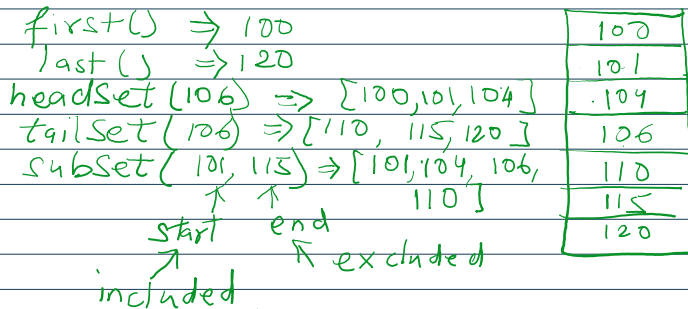 first() => 100
last() => 120
headSet(106) => [100,101,104]
tailSet(106) => [110, 115, 120]
subSet(101, 115) => [101,104, 106,
110]
start end
included excluded
100
101
104
106
110
115
120